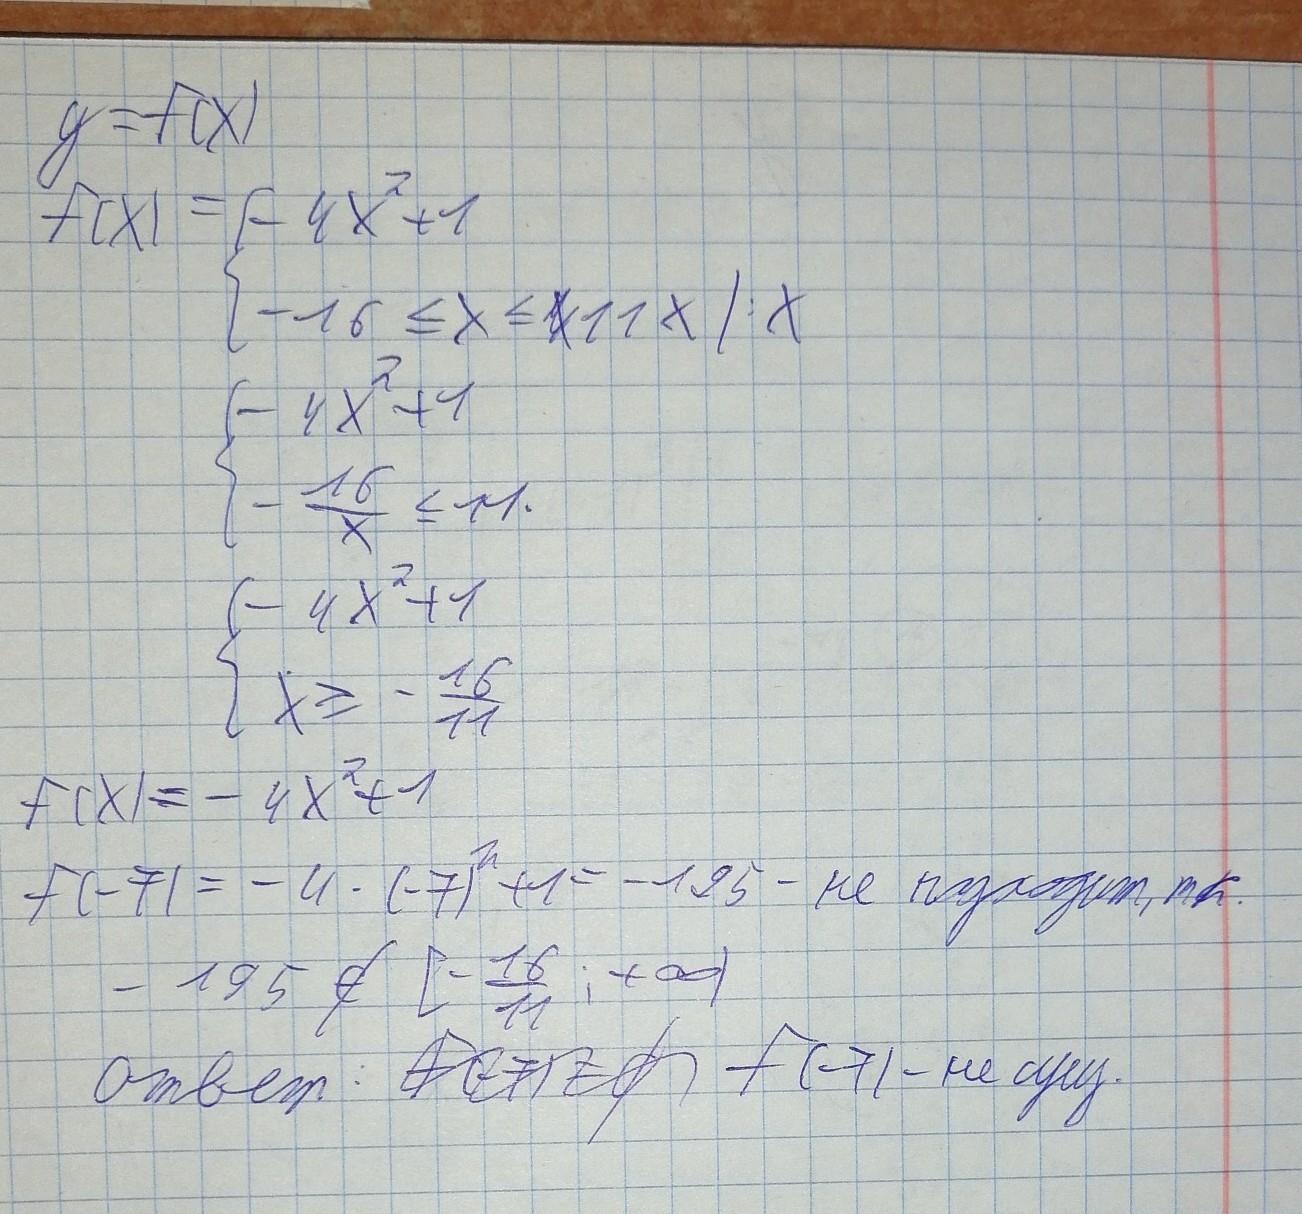 y=f(x)
f(x) = { - 4x²+1
-16 ≤ x ≤ 11x /: x
{ - 4x²+1
- 16/x ≤ 11.
{ - 4x²+1
x ≥ - 16/11
f(x) = - 4x²+1
f(-7) = - 4 · (-7)²+1 = -195 - не подходит, т.к.
- 195 ∉ [- 16/11 ; +∞)
Ответ: f(-7) - не сущ.